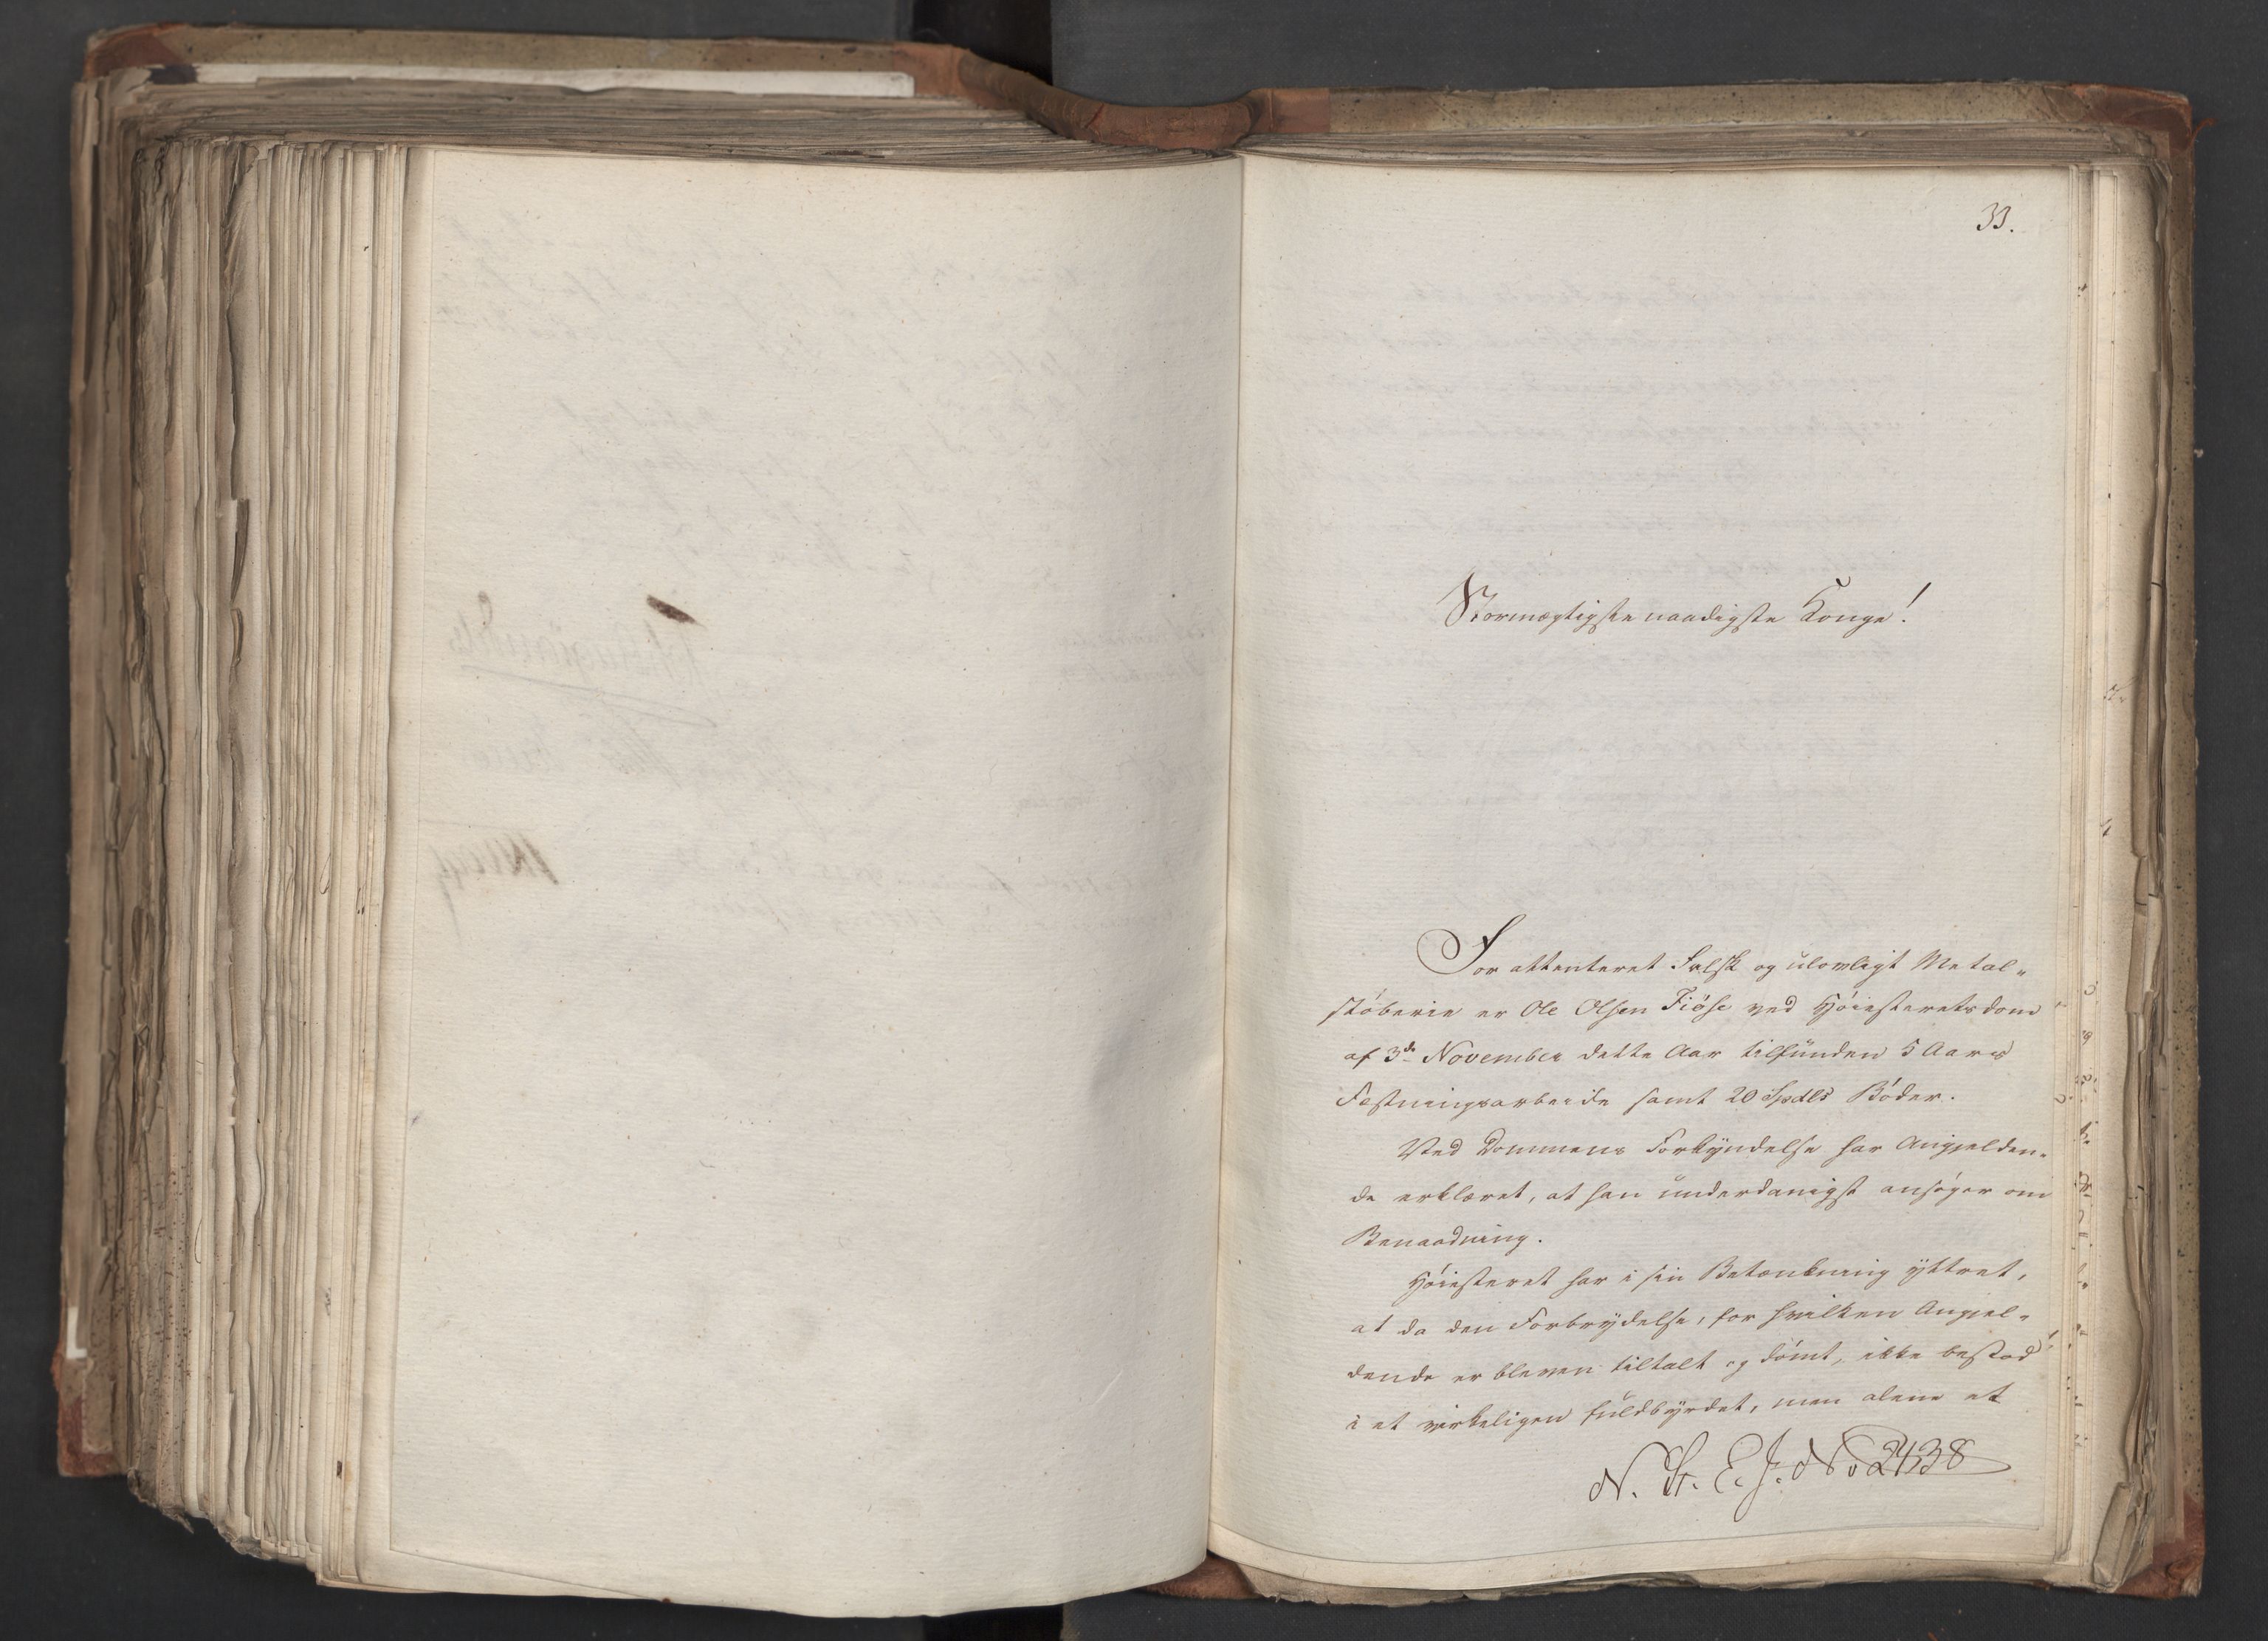 33.
Stormægtigste naadigste Konge!
For attenteret falsk og ulovligt Metal-
støberie er Ole Olsen Fiøse ved Høiesteretsdom
af 3de November dette Aar tilfunden 5 Aars
Fæstningsarbeide samt 20 Spdlr Bøder.
Ved Dommens Forkyndelse har Angjelden-
de erklæret, at han underdanigst ansøger om
Benaadning.
Høiesteret har i sin Betænkning yttret,
at da den Forbrydelse, for hvilken Angjel-
dende er bleven tiltalt og dømt, ikke bestod
i et virkeligen fuldbyrdet, men alene et
N. St. E. J. No 2438